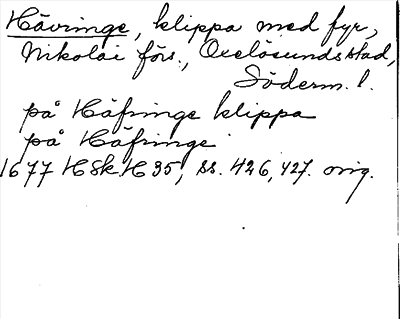 Hävringe, klippa med fyr,
Nikolai förs., Oxelösunds stad,
Söderm. l.
på Häfringe klippa
på Häfringe
1677 HSk H35, ss. 426, 427. orig.